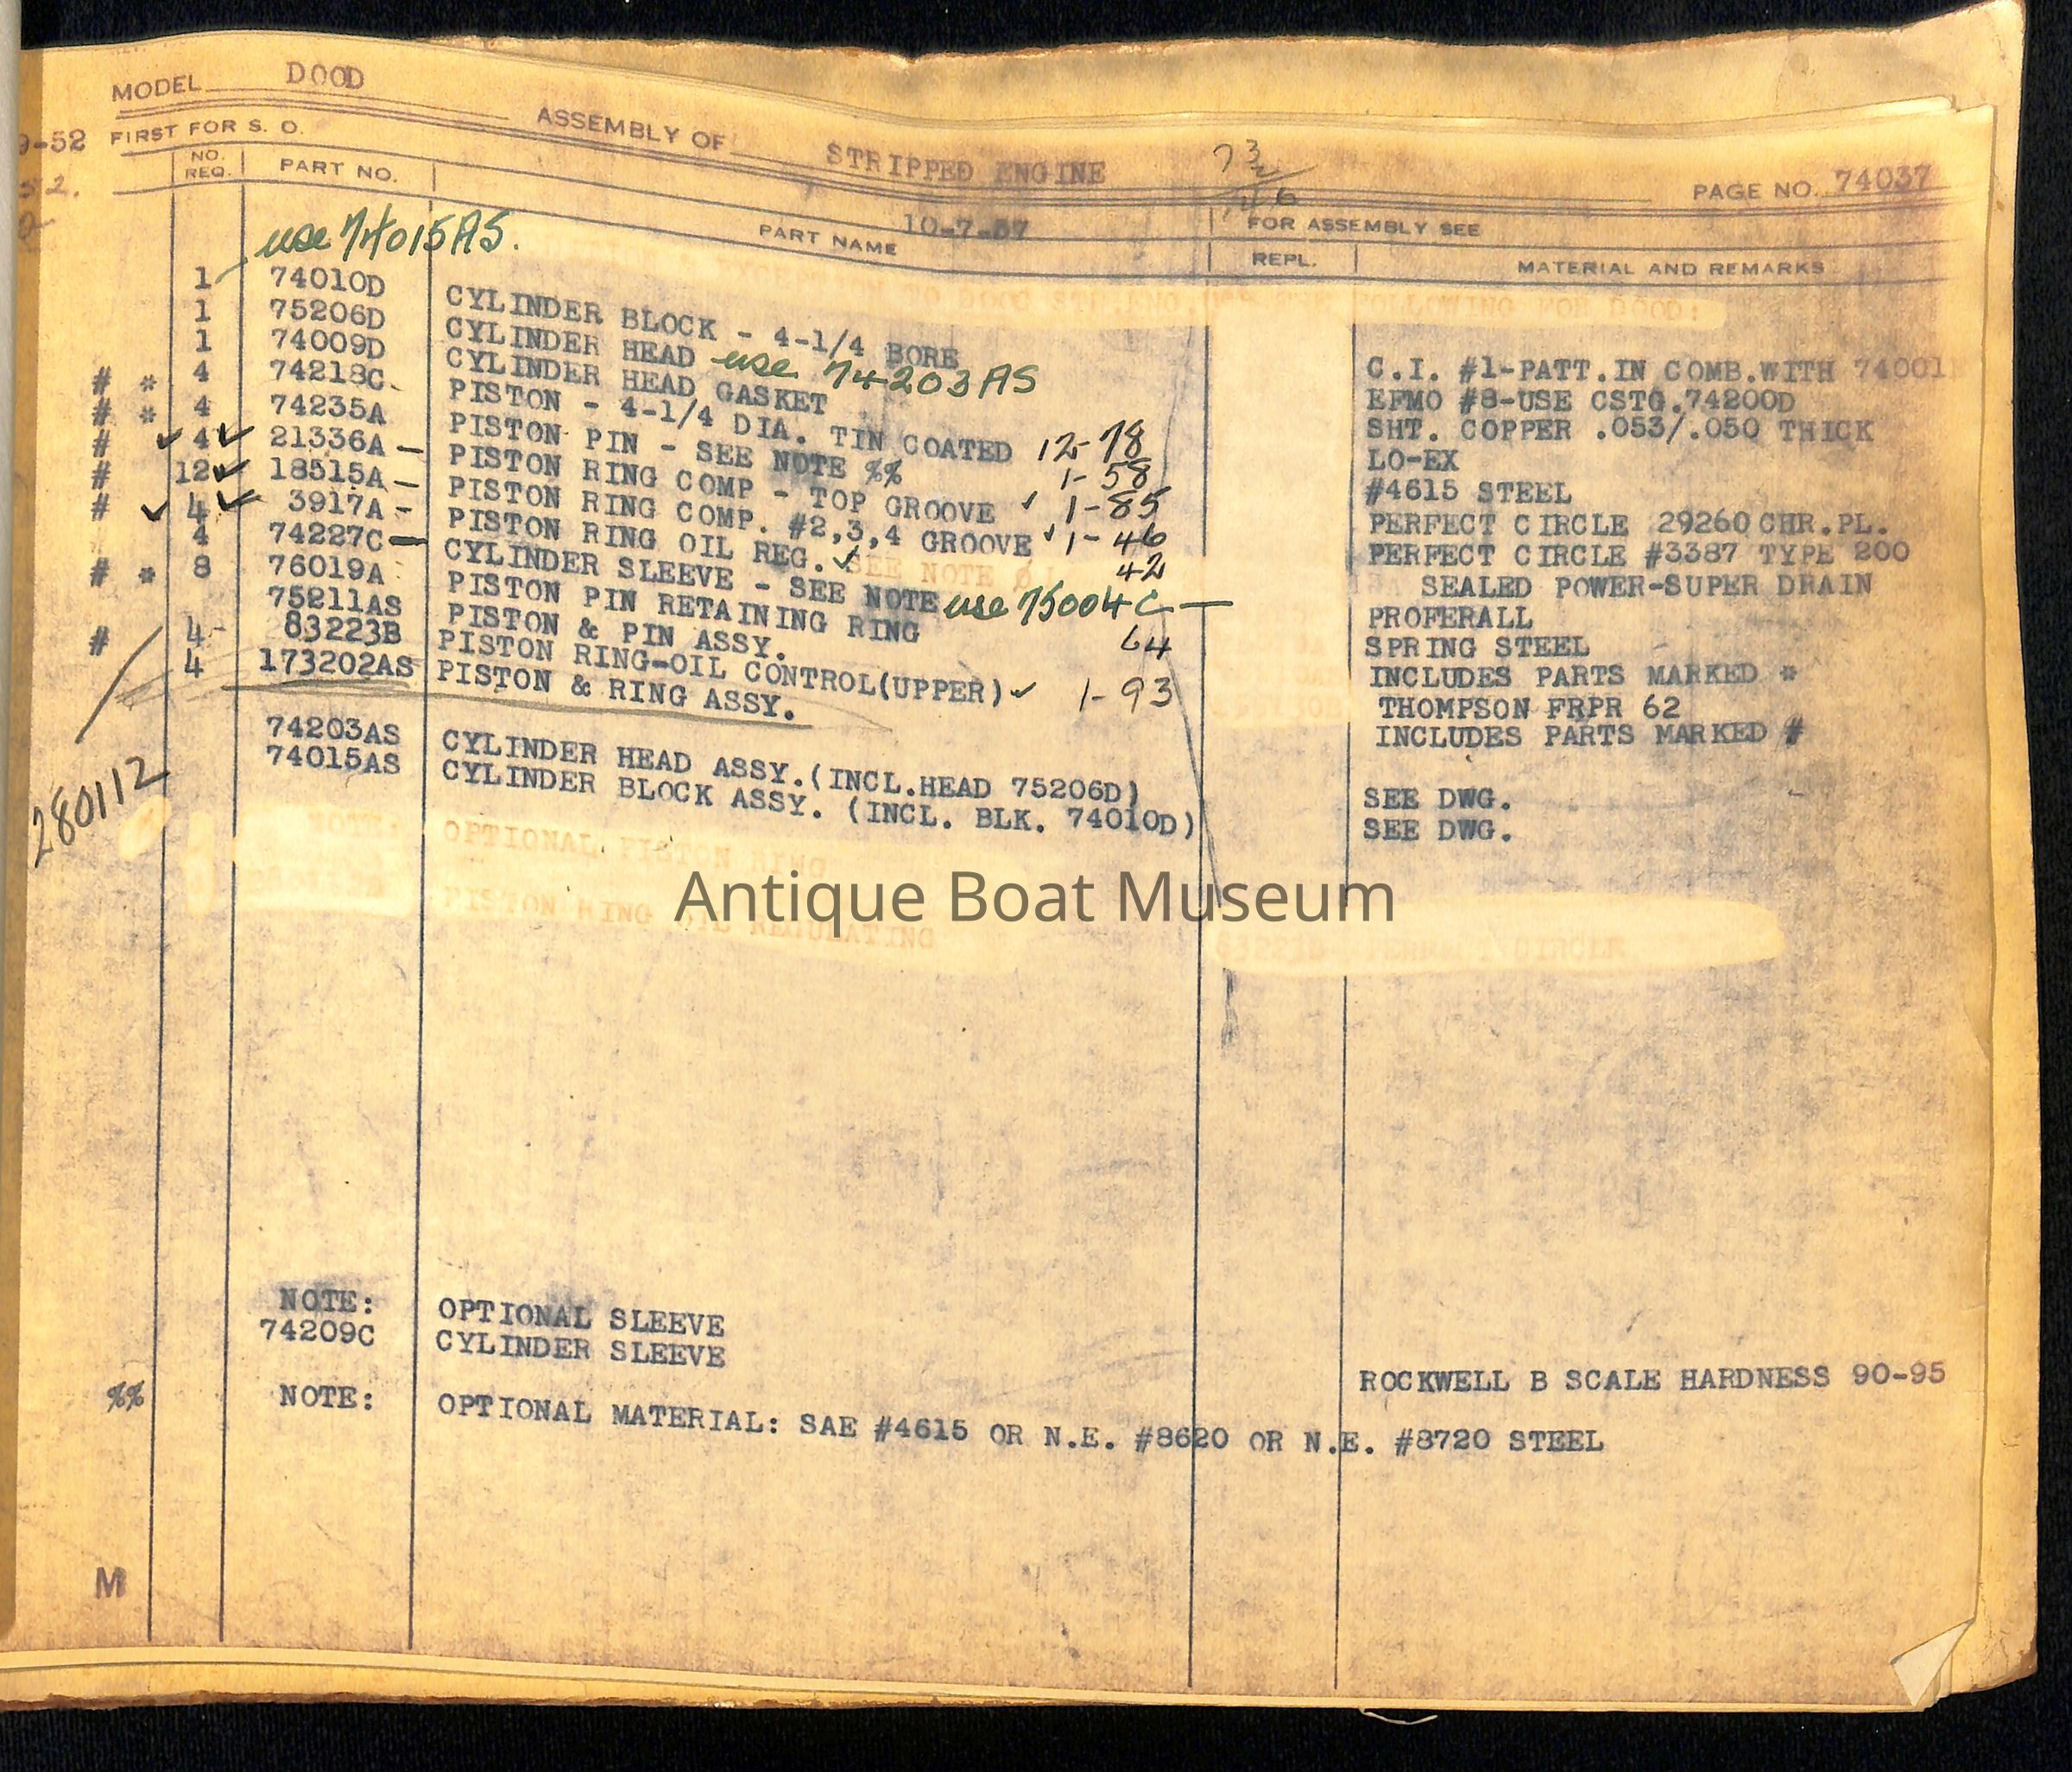 MODEL DOOD
ASSEMBLY OF STRIPPED ENGINE
PAGE NO. 74037
FIRST FOR S. O.
10-7-37
FOR ASSEMBLY SEE
NO. REQ. PART NO. PART NAME REPL. MATERIAL AND REMARKS
use 74015AS.
1 74010D CYLINDER BLOCK - 4-1/4 BORE C.I. #1-PATT.IN COMB.WITH 74001
1 75206D CYLINDER HEAD use 74203AS EFMO #8-USE CSTG.74200D
1 74009D CYLINDER HEAD GASKET SHT. COPPER .053/.050 THICK
# * 4 74218C PISTON - 4-1/4 DIA. TIN COATED 12-78 LO-EX
# * 4 74235A PISTON PIN - SEE NOTE %% 1-58 #4615 STEEL
# ✓ 4 ✓ 21336A - PISTON RING COMP - TOP GROOVE ✓ 1-85 PERFECT CIRCLE 29260 CHR.PL.
# 12 ✓ 18515A - PISTON RING COMP. #2,3,4 GROOVE ✓ 1-46 PERFECT CIRCLE #3387 TYPE 200
# ✓ 4 ✓ 3917A - PISTON RING OIL REG. ✓ SEE NOTE 42 SEALED POWER-SUPER DRAIN
4 74227C - CYLINDER SLEEVE - SEE NOTE use 75004C - PROFERALL
# * 8 76019A PISTON PIN RETAINING RING 64 SPRING STEEL
75211AS PISTON & PIN ASSY. INCLUDES PARTS MARKED *
# 4 83223B PISTON RING-OIL CONTROL(UPPER) ✓ 1-93 THOMPSON FRPR 62
4 173202AS PISTON & RING ASSY. INCLUDES PARTS MARKED #
74203AS CYLINDER HEAD ASSY.(INCL.HEAD 75206D) SEE DWG.
74015AS CYLINDER BLOCK ASSY. (INCL. BLK. 74010D) SEE DWG.
280112
NOTE: OPTIONAL PISTON RING
PISTON RING OIL REGULATING
Antique Boat Museum
NOTE: OPTIONAL SLEEVE
74209C CYLINDER SLEEVE ROCKWELL B SCALE HARDNESS 90-95
%% NOTE: OPTIONAL MATERIAL: SAE #4615 OR N.E. #8620 OR N.E. #8720 STEEL
M